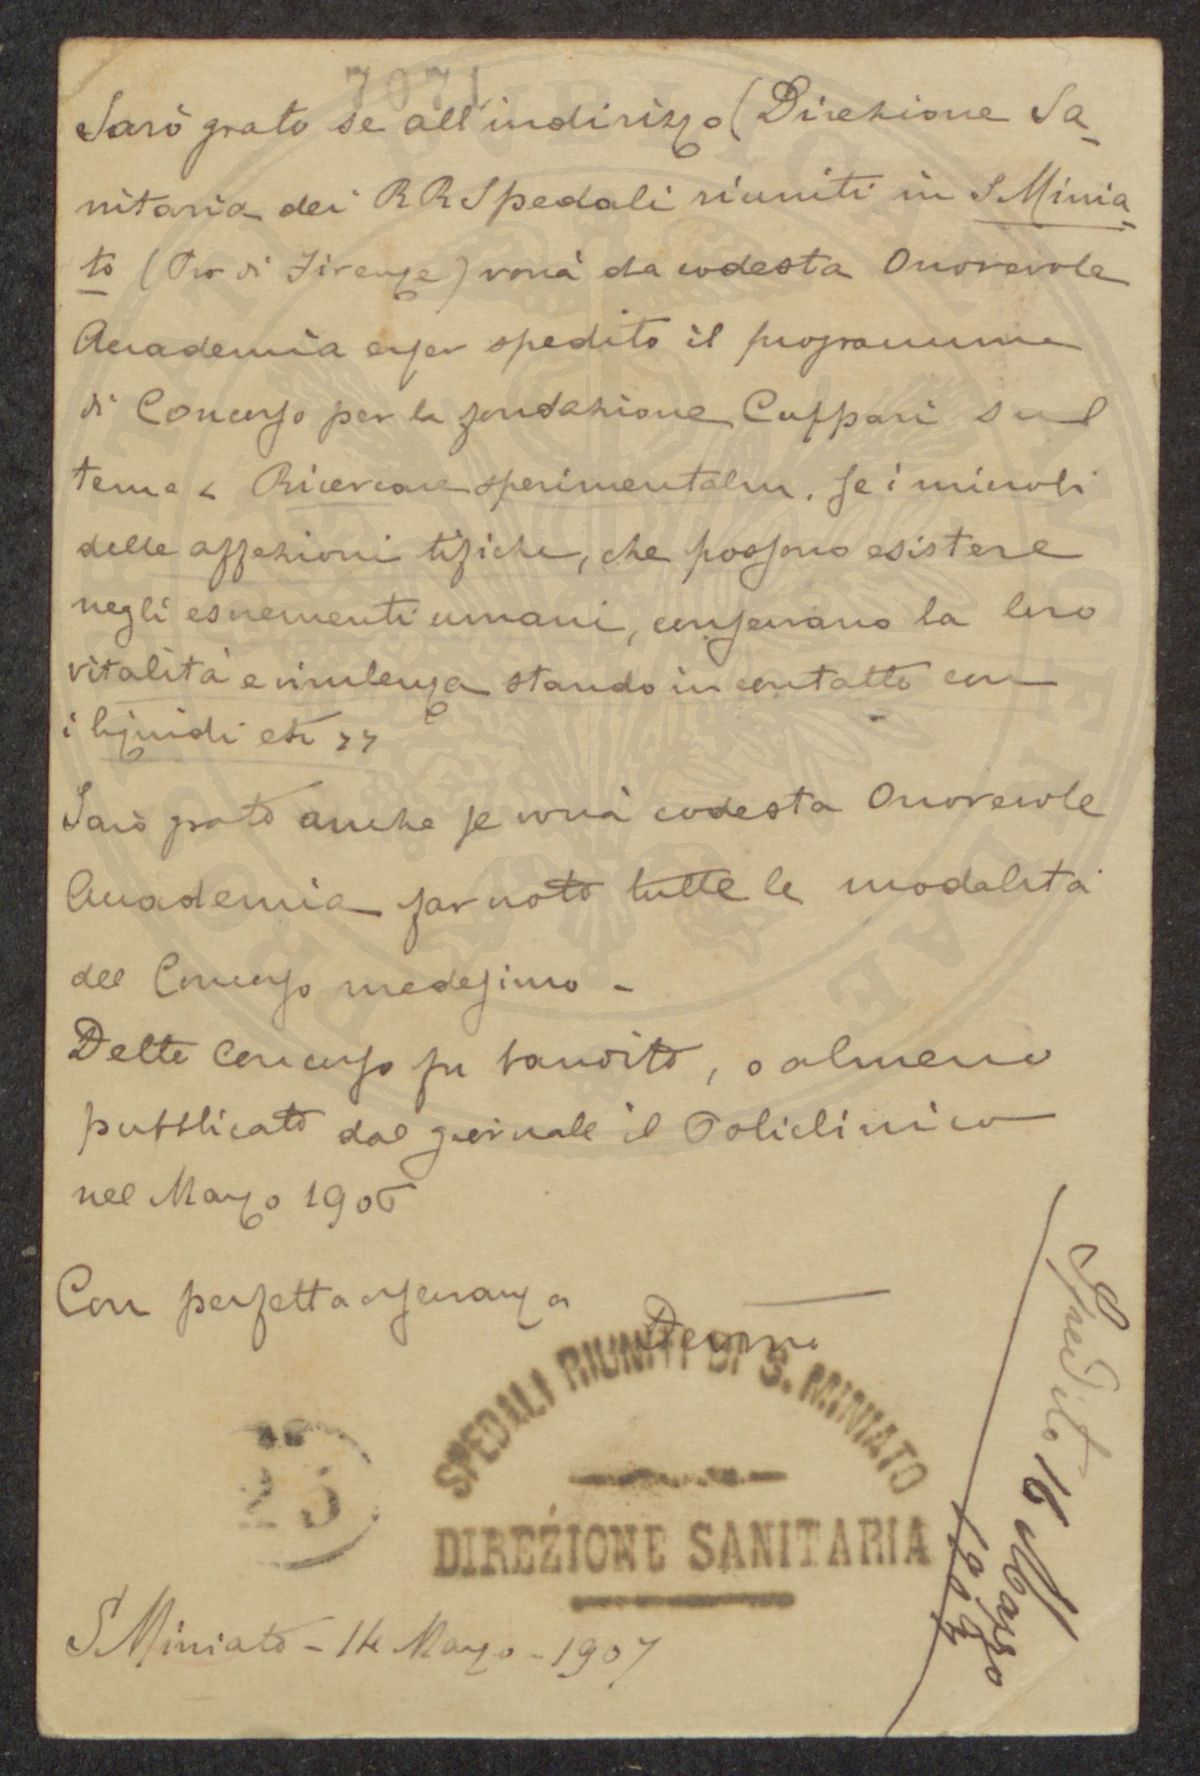 7071
Sarò grato se all'indirizzo (Direzione Sa-
nitaria dei RR Spedali riuniti in S Minia-
to (Pro di Firenze) vorrà da codesta Onorevole
Accademia esser spedito il programma
di Concorso per la fondazione Cuppari sul
tema « Ricercare sperimentalm. se i microbi
delle affezioni tifiche, che possono esistere
negli escrementi umani, conservano la loro
vitalità e virulenza stando in contatto con
i liquidi etc »
Sarò grato anche se vorrà codesta Onorevole
Accademia far noto tutte le modalità
del Concorso medesimo -
Detto concorso fu bandito, o almeno
pubblicato dal giornale il Policlinico
nel Marzo 1906
Con perfetta osservanza
SPEDALI RIUNITI DI S. MINIATO
DIREZIONE SANITARIA
23
S Miniato - 14 Marzo - 1907
Spedito 16 Marzo
1907